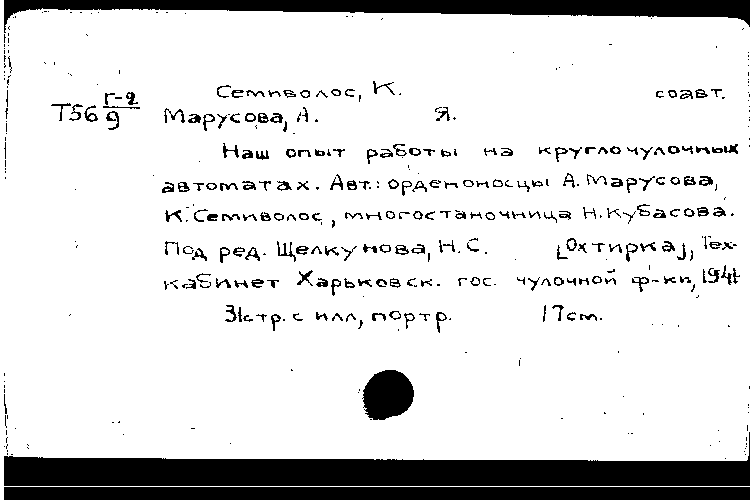 Семиволос, К. соавт.
Т56 Г-2/9 Марусова, А. Я.
Наш опыт работы на круглочулочных
автоматах. Авт.: орденоносцы А. Марусова,
К. Семиволос, многостаночница Н. Кубасова.
Под ред. Щелкунова, Н. С. [Охтирка], Тех-
кабинет Харьковск. гос. чулочной ф-ки, 1941
31 стр. с илл, портр. 17 см.